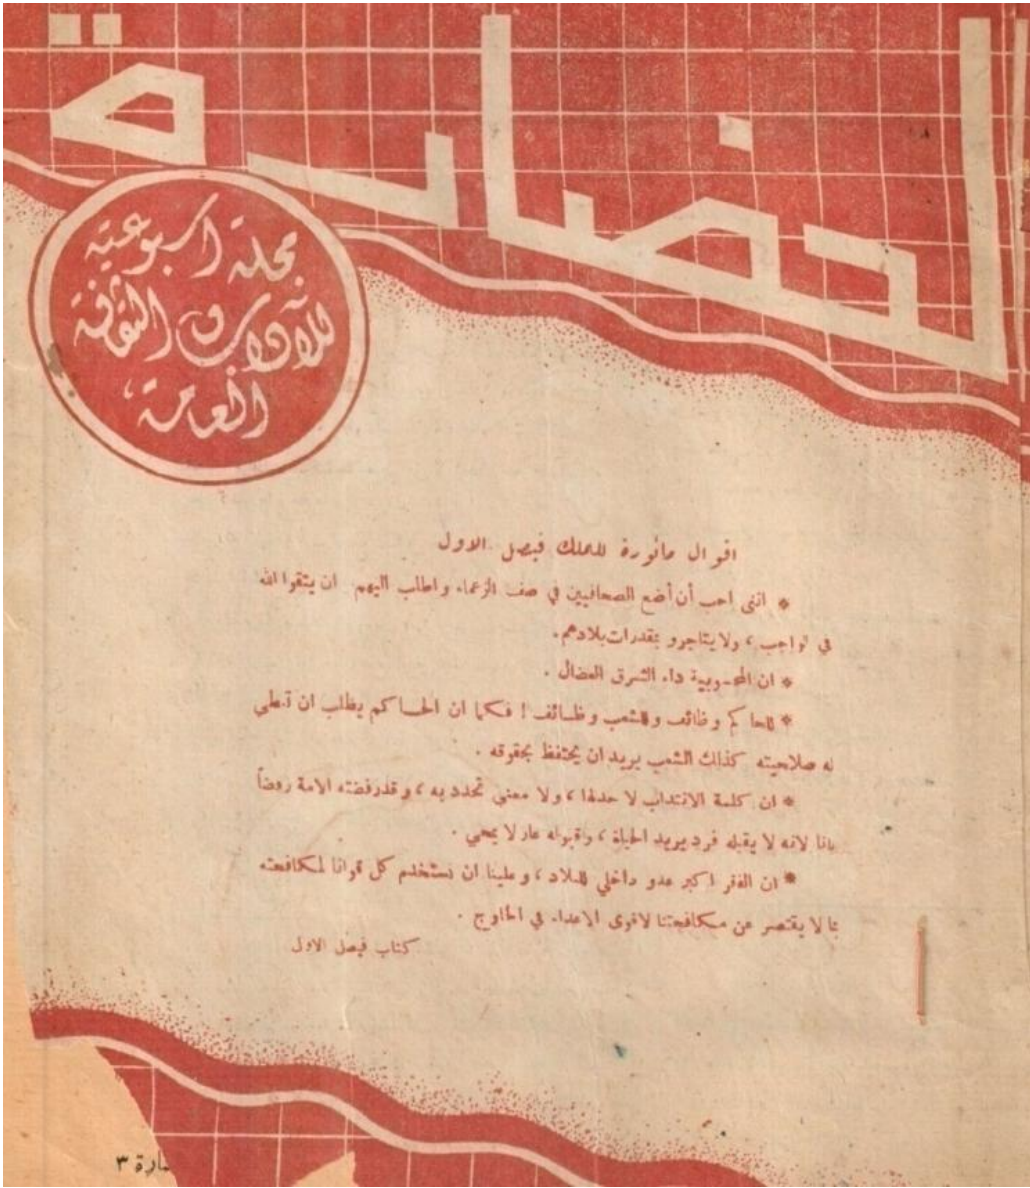 الحضارة
مجلة اسبوعية
للآداب والثقافة
العامة
اقوال مأثورة للملك فيصل الاول
* انني احب أن أضع الصحافيين في صف الزعماء واطلب اليهم ان يتقوا الله
في لواجب ، ولا يتاجرو بمقدرات بلادهم .
* ان المحسوبية داء الشرق العضال .
* للحاكم وظائف وللشعب وظائف ! فكما ان الحاكم يطلب ان تعطي
له صلاحيته كذلك الشعب يريد ان يحتفظ بحقوقه .
* ان كلمة الانتداب لا حد لها ، ولا معنى تحدد به ، وقد رفضته الامة رفضاً
باتا لانه لا يقبله فرد يريد الحياة ، وقبوله عار لا يمحي .
* ان الفقر اكبر عدو داخلي للبلاد ، وعلينا ان نستخدم كل قوانا لمكافحته
بما لا يقتصر عن مكافحتنا لاقوى الاعداء في الخارج .
كتاب فيصل الاول
٣